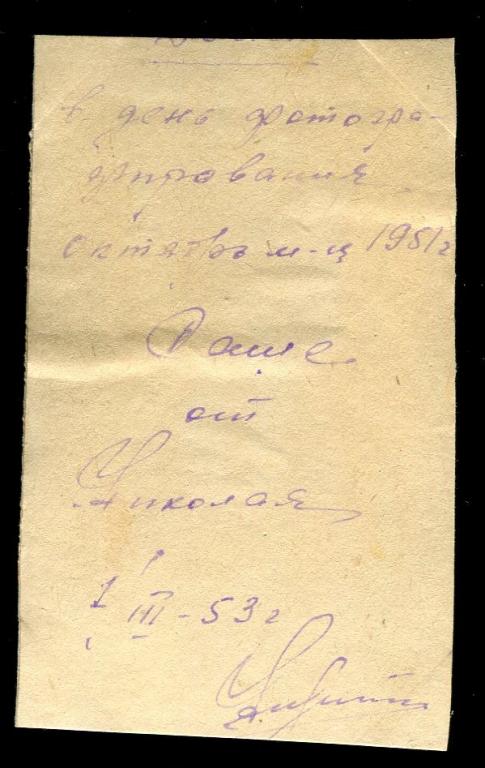 в день фотогра-
фирования
октябрь м-ц 1951 г
от
Николая
1/III-53 г